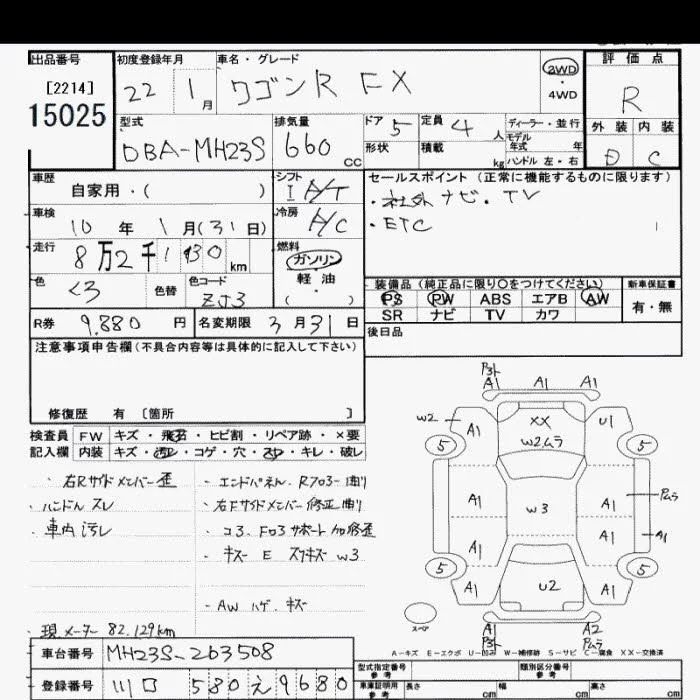 出品番号 初度登録年月 車名・グレード 評価点
[2214] 22 1月 ワゴンR FX 2WD・4WD R
15025
型式 排気量 ドア 5 定員 4 人 ディーラー・並行 外装 内装
DBA-MH23S 660 cc 形状 積載 kg モデル年式 年 ハンドル 左・右 D C
車歴 シフト セールスポイント (正常に機能するものに限ります)
自家用・( ) I A/T ・社外ナビ・TV
車検 冷房 ・ETC
10年1月(31日) A/C
走行 燃料
8万2千130km ガソリン
軽油
・( )
色 色替 色コード 装備品(純正品に限り○をつけてください) 新車保証書
クロ ZJ3 PS PW ABS エアB AW 有・無
SR ナビ TV カワ
R券 9.880円 名変期限 3月31日 後日品
注意事項申告欄(不具合内容等は具体的に記入して下さい)
修復歴 有 [箇所 ]
検査員 FW キズ・飛石・ヒビ割・リペア跡・×要
記入欄 内装 キズ・汚レ・コゲ・穴・スレ・キレ・破レ
・右Rサイドメンバー歪 ・エンドパネル、Rフロアー曲り
・ハンドルスレ ・右Fサイドメンバー修正曲り
・車内汚レ ・コ3、
・キズ E スリキズ W3
・AW ハゲ、キズ
・現メーター 82,129km
A1 A1 A1
W2 A1 XX U1
5 W2ムラ 5
A1 W3 A1 Pムラ
A1 A1 A1
5 5
A1 U2 A1
スペア A1 A2
Pムラ
A-キズ E-エクボ U-凹み W-補修跡 S-サビ C-腐食 XX-交換済
車台番号 MH23S-263508 型式指定番号 参考 類別区分番号 参考
登録番号 川口 580 え 9680 車庫証明用 参考 長さ cm 幅 cm 高さ cm